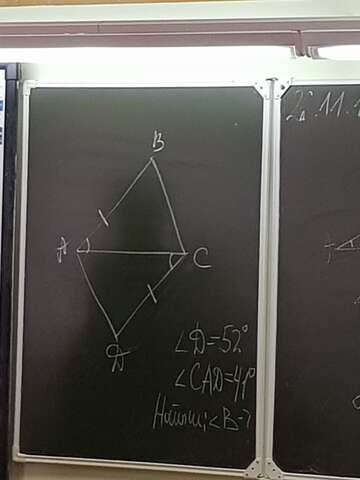 B
A
C
D
∠D=52°
∠CAD=41°
Найти: ∠B-?
2.11.